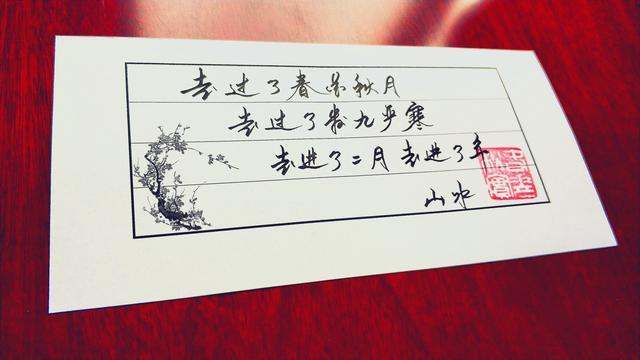 走过了春花秋月
走过了数九严寒
走进了二月 走进了年
山水